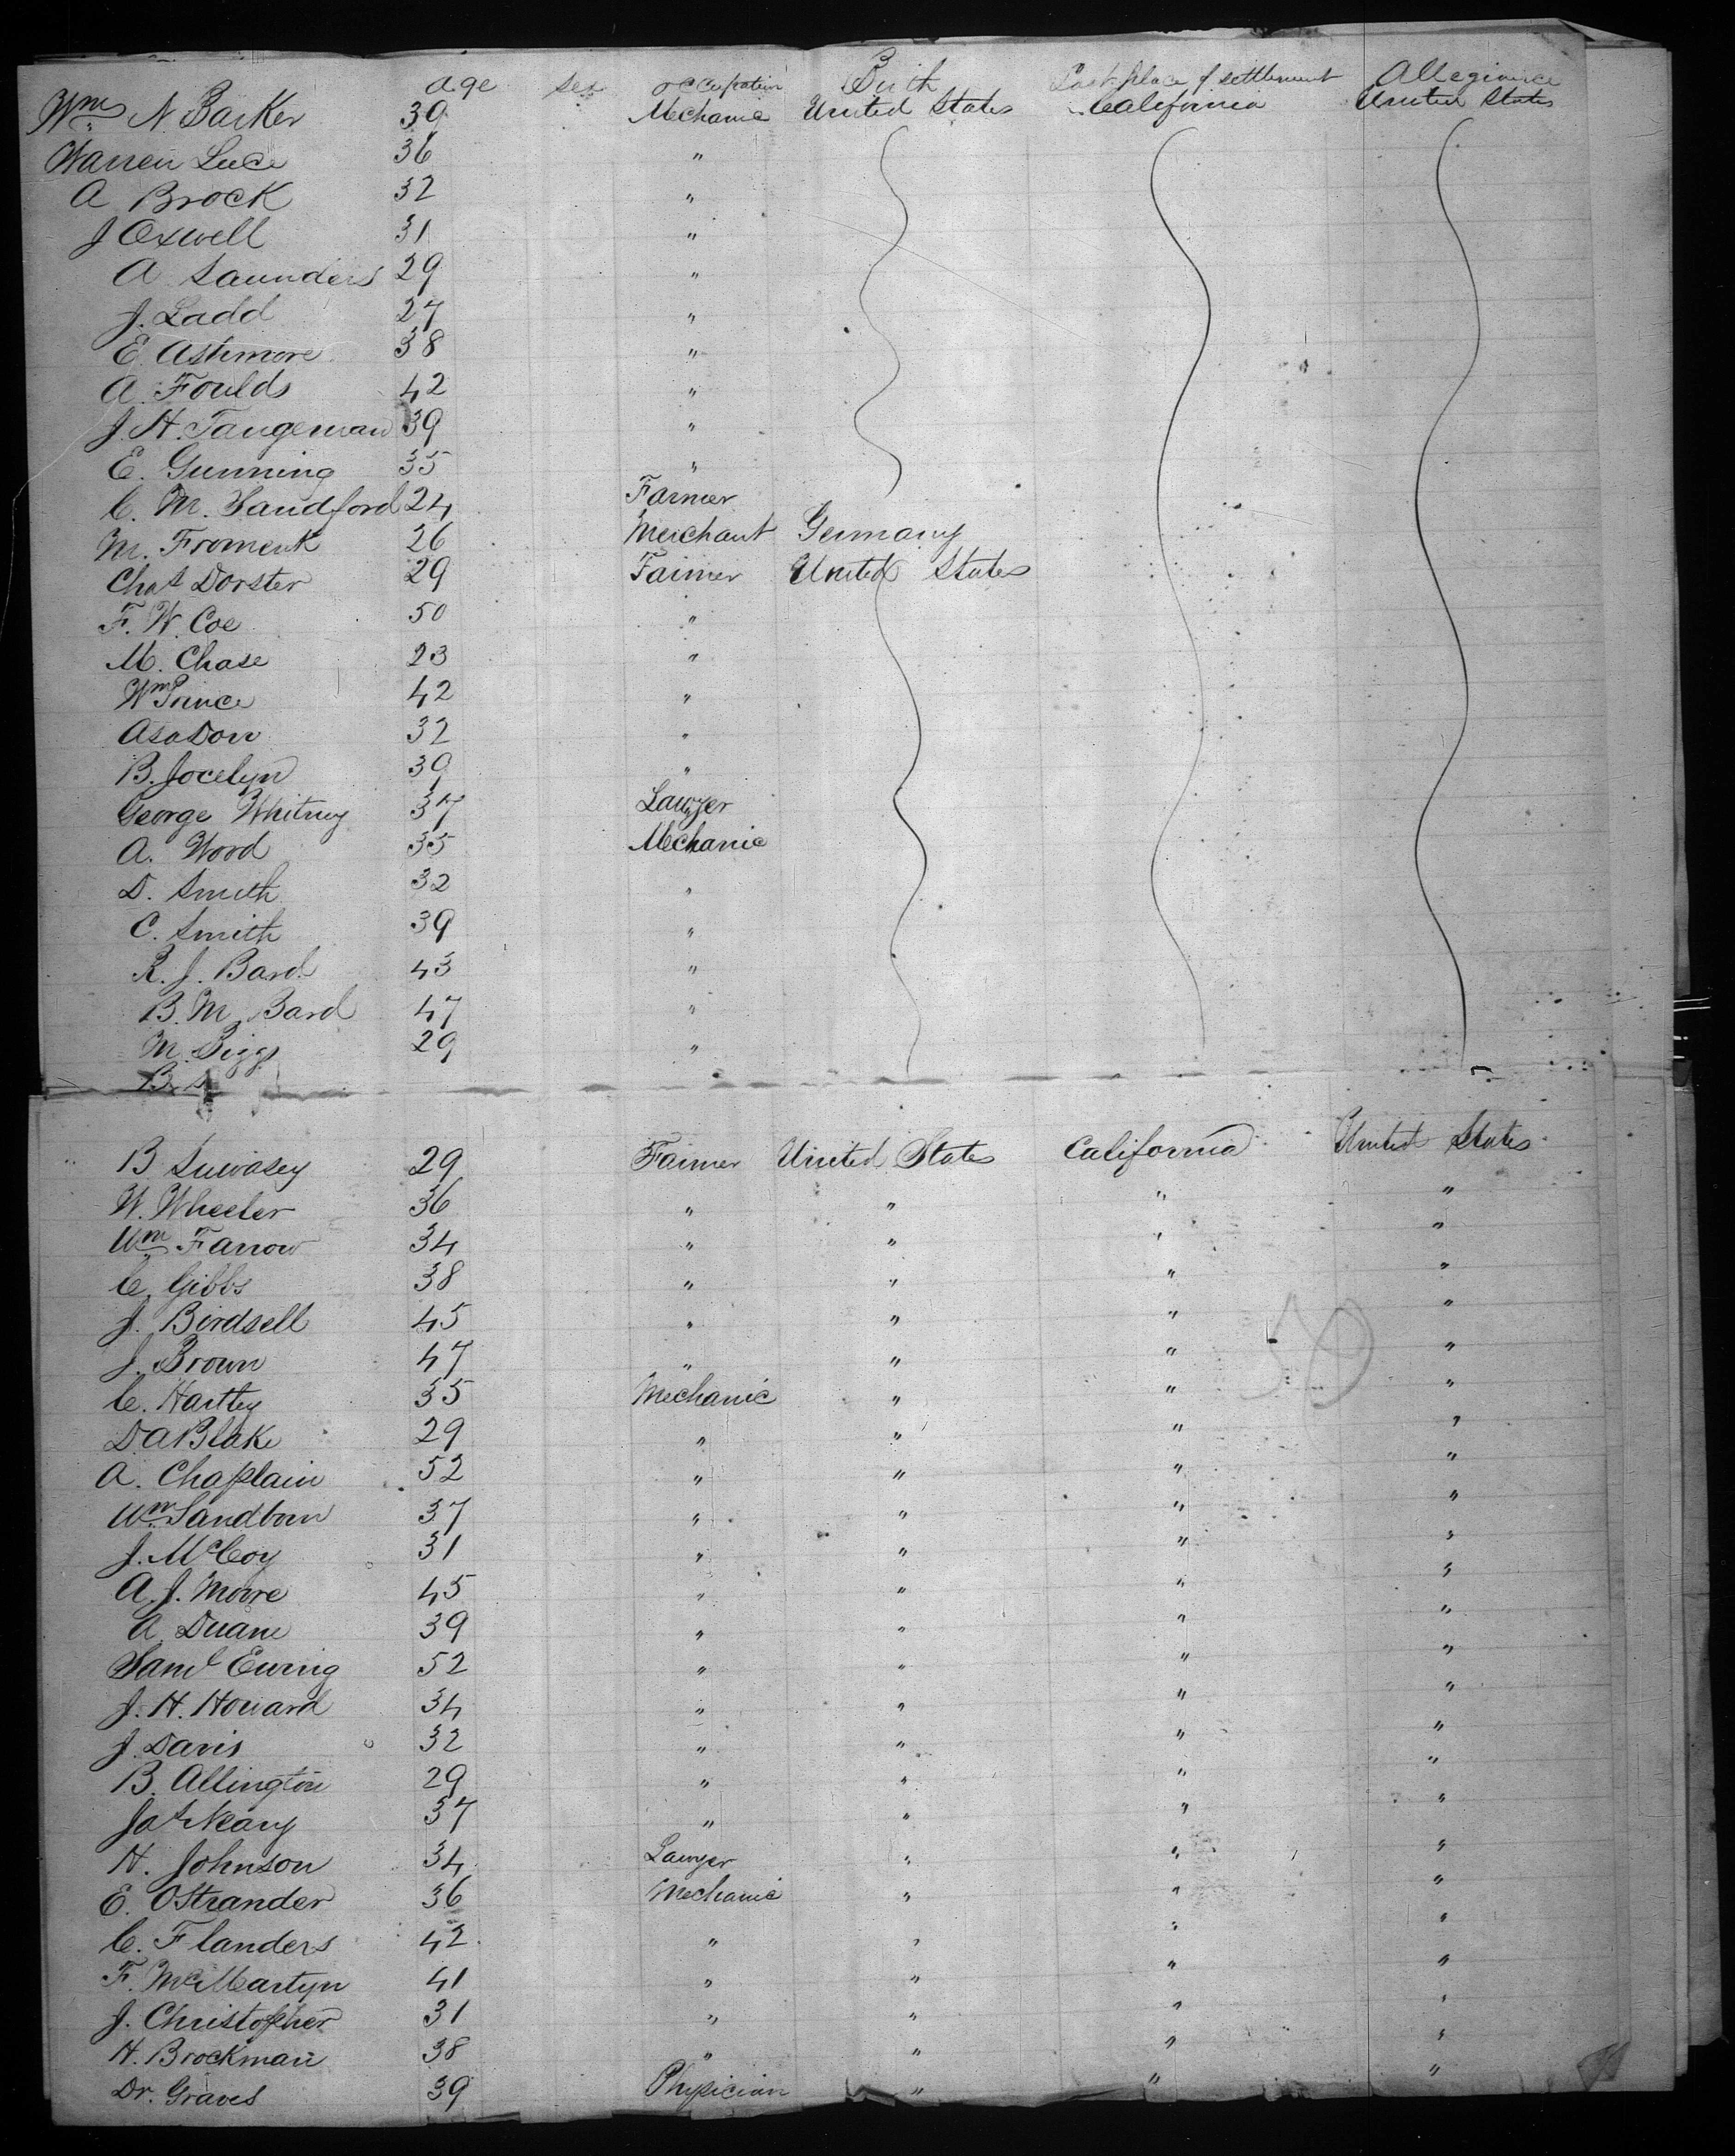 age sex occupation Birth Last place of settlement Allegiance
Wm N. Barker 39 Mechanic United States California United States
Warren Luce 36 "
A Brock 32 "
J Oxwell 31 "
A Saunders 29 "
J. Ladd 27 "
E. Ashmore 38 "
A. Foulds 42 "
J. H. Tangeman 39 "
E. Gunning 35 "
C. M. Sandford 24 Farmer
M. Froment 26 Merchant Germany
Chas Dorster 29 Farmer United States
F. W. Coe 50 "
M. Chase 23 "
Wm Prince 42 "
Asa Dow 32 "
B. Jocelyn 39 "
George Whitney 37 Lawyer
A. Wood 35 Mechanic
D. Smith 32 "
C. Smith 39 "
R. J. Bard 43 "
B. M. Bard 47 "
M. Biggs 29 "
B. S
B 29 Farmer United States California United States
W. Wheeler 36 " " " "
Wm Farrow 34 " " " "
C. Gibbs 38 " " " "
J. Birdsell 45 " " " "
J. Brown 47 " " " "
C. Hartley 35 Mechanic " " "
D A Blake 29 " " " "
A. Chaplain 52 " " " "
Wm Sandborn 37 " " " "
J. McCoy 31 " " " "
A. J. Moore 45 " " " "
A Duane 39 " " " "
Saml Ewing 52 " " " "
J. H. Howard 34 " " " "
J. Davis 32 " " " "
B. Allington 29 " " " "
Jas Neary 37 " " " "
H. Johnson 34 Lawyer " " "
E. Ostrander 36 Mechanic " " "
C. Flanders 42 " " " "
F. McMartyn 41 " " " "
J. Christopher 31 " " " "
H. Brockman 38 " " " "
Dr. Graves 39 Physician " " "